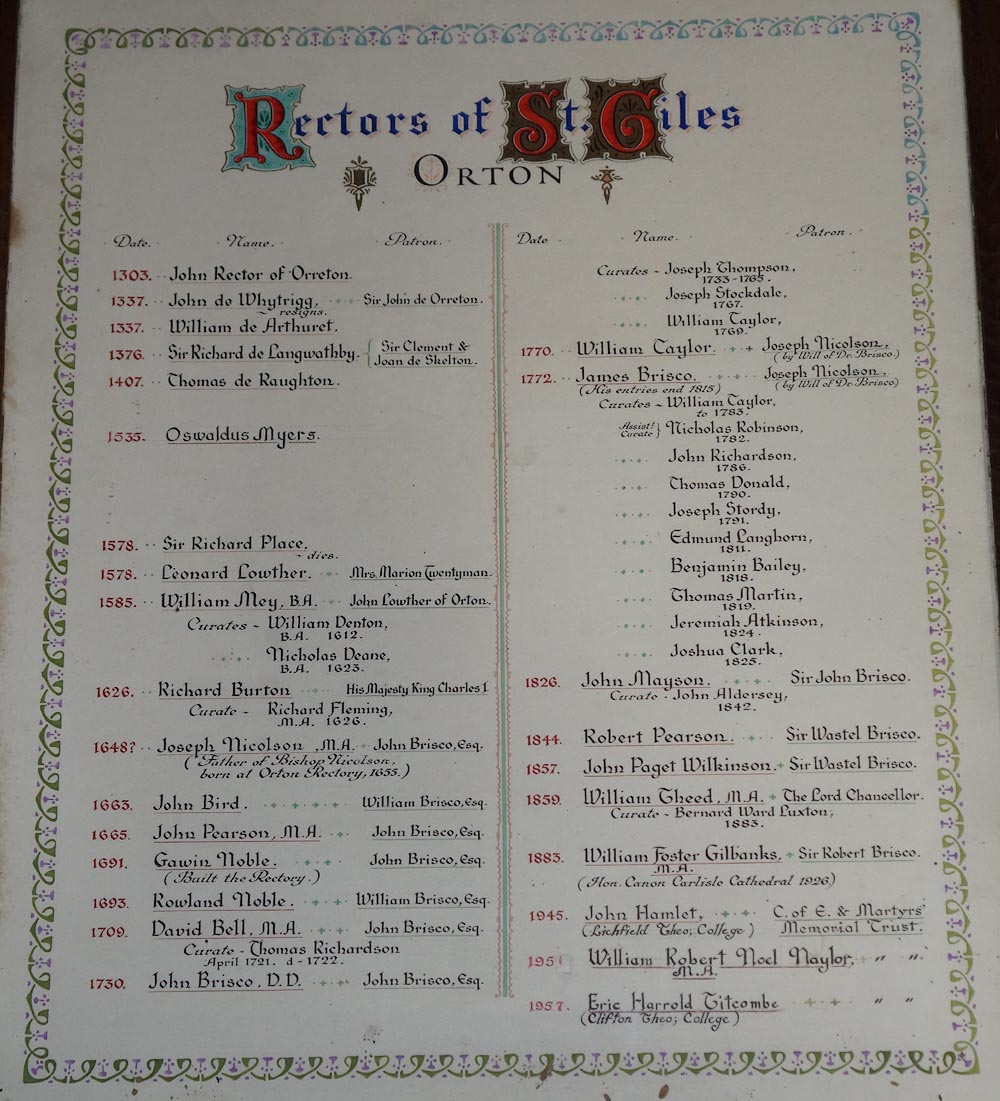 Rectors of St. Giles
ORTON
Date. Name. Patron.
1303. John Rector of Orreton.
1337. John de Whytrigg, Sir John de Orreton.
~ resigns.
1337. William de Arthuret.
1376. Sir Richard de Langwathby. { Sir Clement &
Joan de Skelton.
1407. Thomas de Raughton.
1535. Oswaldus Myers.
1578. Sir Richard Place,
~ dies.
1578. Leonard Lowther. Mrs. Marion Twentyman.
1585. William Mey, B.A. John Lowther of Orton.
Curates ~ William Denton,
B.A. 1612.
Nicholas Deane,
B.A. 1623.
1626. Richard Burton His Majesty King Charles I
Curate ~ Richard Fleming,
M.A. 1626.
1648? Joseph Nicolson, M.A. John Brisco, Esq.
(Father of Bishop Nicolson,
born at Orton Rectory, 1655.)
1663. John Bird. William Brisco, Esq.
1665. John Pearson, M.A. John Brisco, Esq.
1691. Gawin Noble. John Brisco, Esq.
(Built the Rectory.)
1693. Rowland Noble. William Brisco, Esq.
1709. David Bell, M.A. John Brisco, Esq.
Curate ~ Thomas Richardson
April 1721. d ~ 1722.
1730. John Brisco, D.D. John Brisco, Esq.
Date Name. Patron.
Curates ~ Joseph Thompson,
1733-1765.
Joseph Stockdale,
1767.
William Taylor,
1769.
1770. William Taylor. Joseph Nicolson,
(by Will of Dr. Brisco.)
1772. James Brisco. Joseph Nicolson,
(His entries end 1815) (by Will of Dr. Brisco)
Curates ~ William Taylor,
to 1783.
Assist! Curate } Nicholas Robinson,
1782.
John Richardson,
1786.
Thomas Donald,
1790.
Joseph Stordy,
1791.
Edmund Langhorn,
1811.
Benjamin Bailey,
1818.
Thomas Martin,
1819.
Jeremiah Atkinson,
1824.
Joshua Clark,
1825.
1826. John Mayson. Sir John Brisco.
Curate ~ John Aldersey,
1842.
1844. Robert Pearson. Sir Wastel Brisco.
1857. John Paget Wilkinson. Sir Wastel Brisco.
1859. William Theed, M.A. The Lord Chancellor.
Curate ~ Bernard Ward Luxton,
1883.
1883. William Foster Gilbanks, Sir Robert Brisco.
M.A.
(Hon. Canon Carlisle Cathedral 1926)
1945. John Hamlet, C. of E. & Martyrs'
(Lichfield Theo; College) Memorial Trust.
1951 William Robert Noel Naylor, " "
M.A.
1957. Eric Harrold Titcombe " "
(Clifton Theo; College)